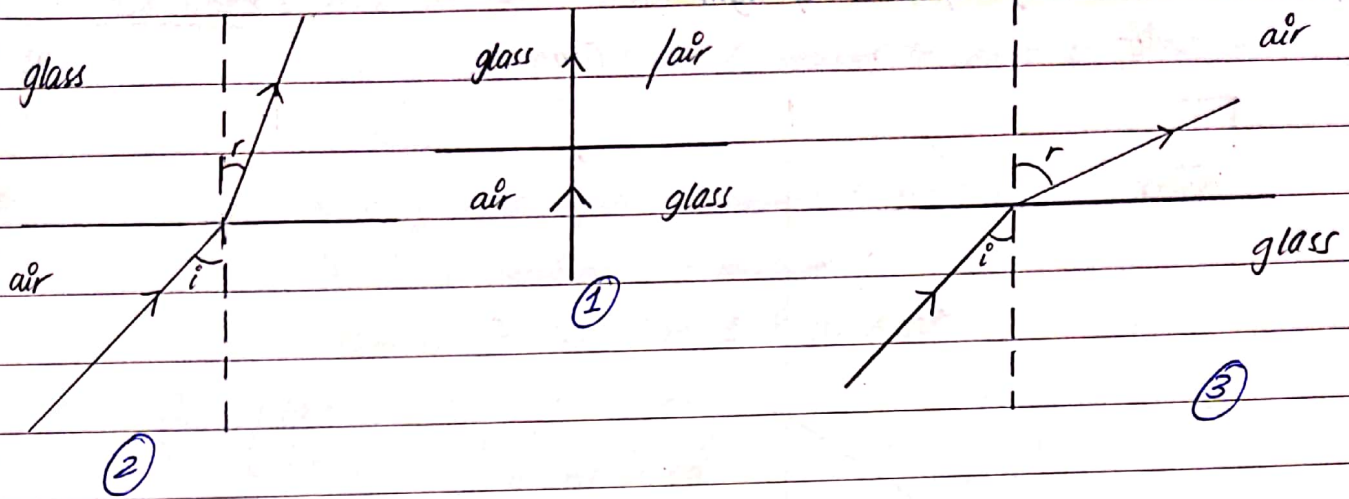 glass
r
i
air
2
glass /air
air glass
1
air
r
i
glass
3